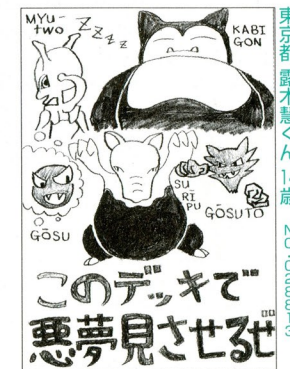 MYu-
two
ZZZZ
KABI
GON
GŌSU
SU
RI
PU
GŌSUTO
このデッキで
悪夢見させるぜ
東京都 露木慧くん 14歳
NO.02883